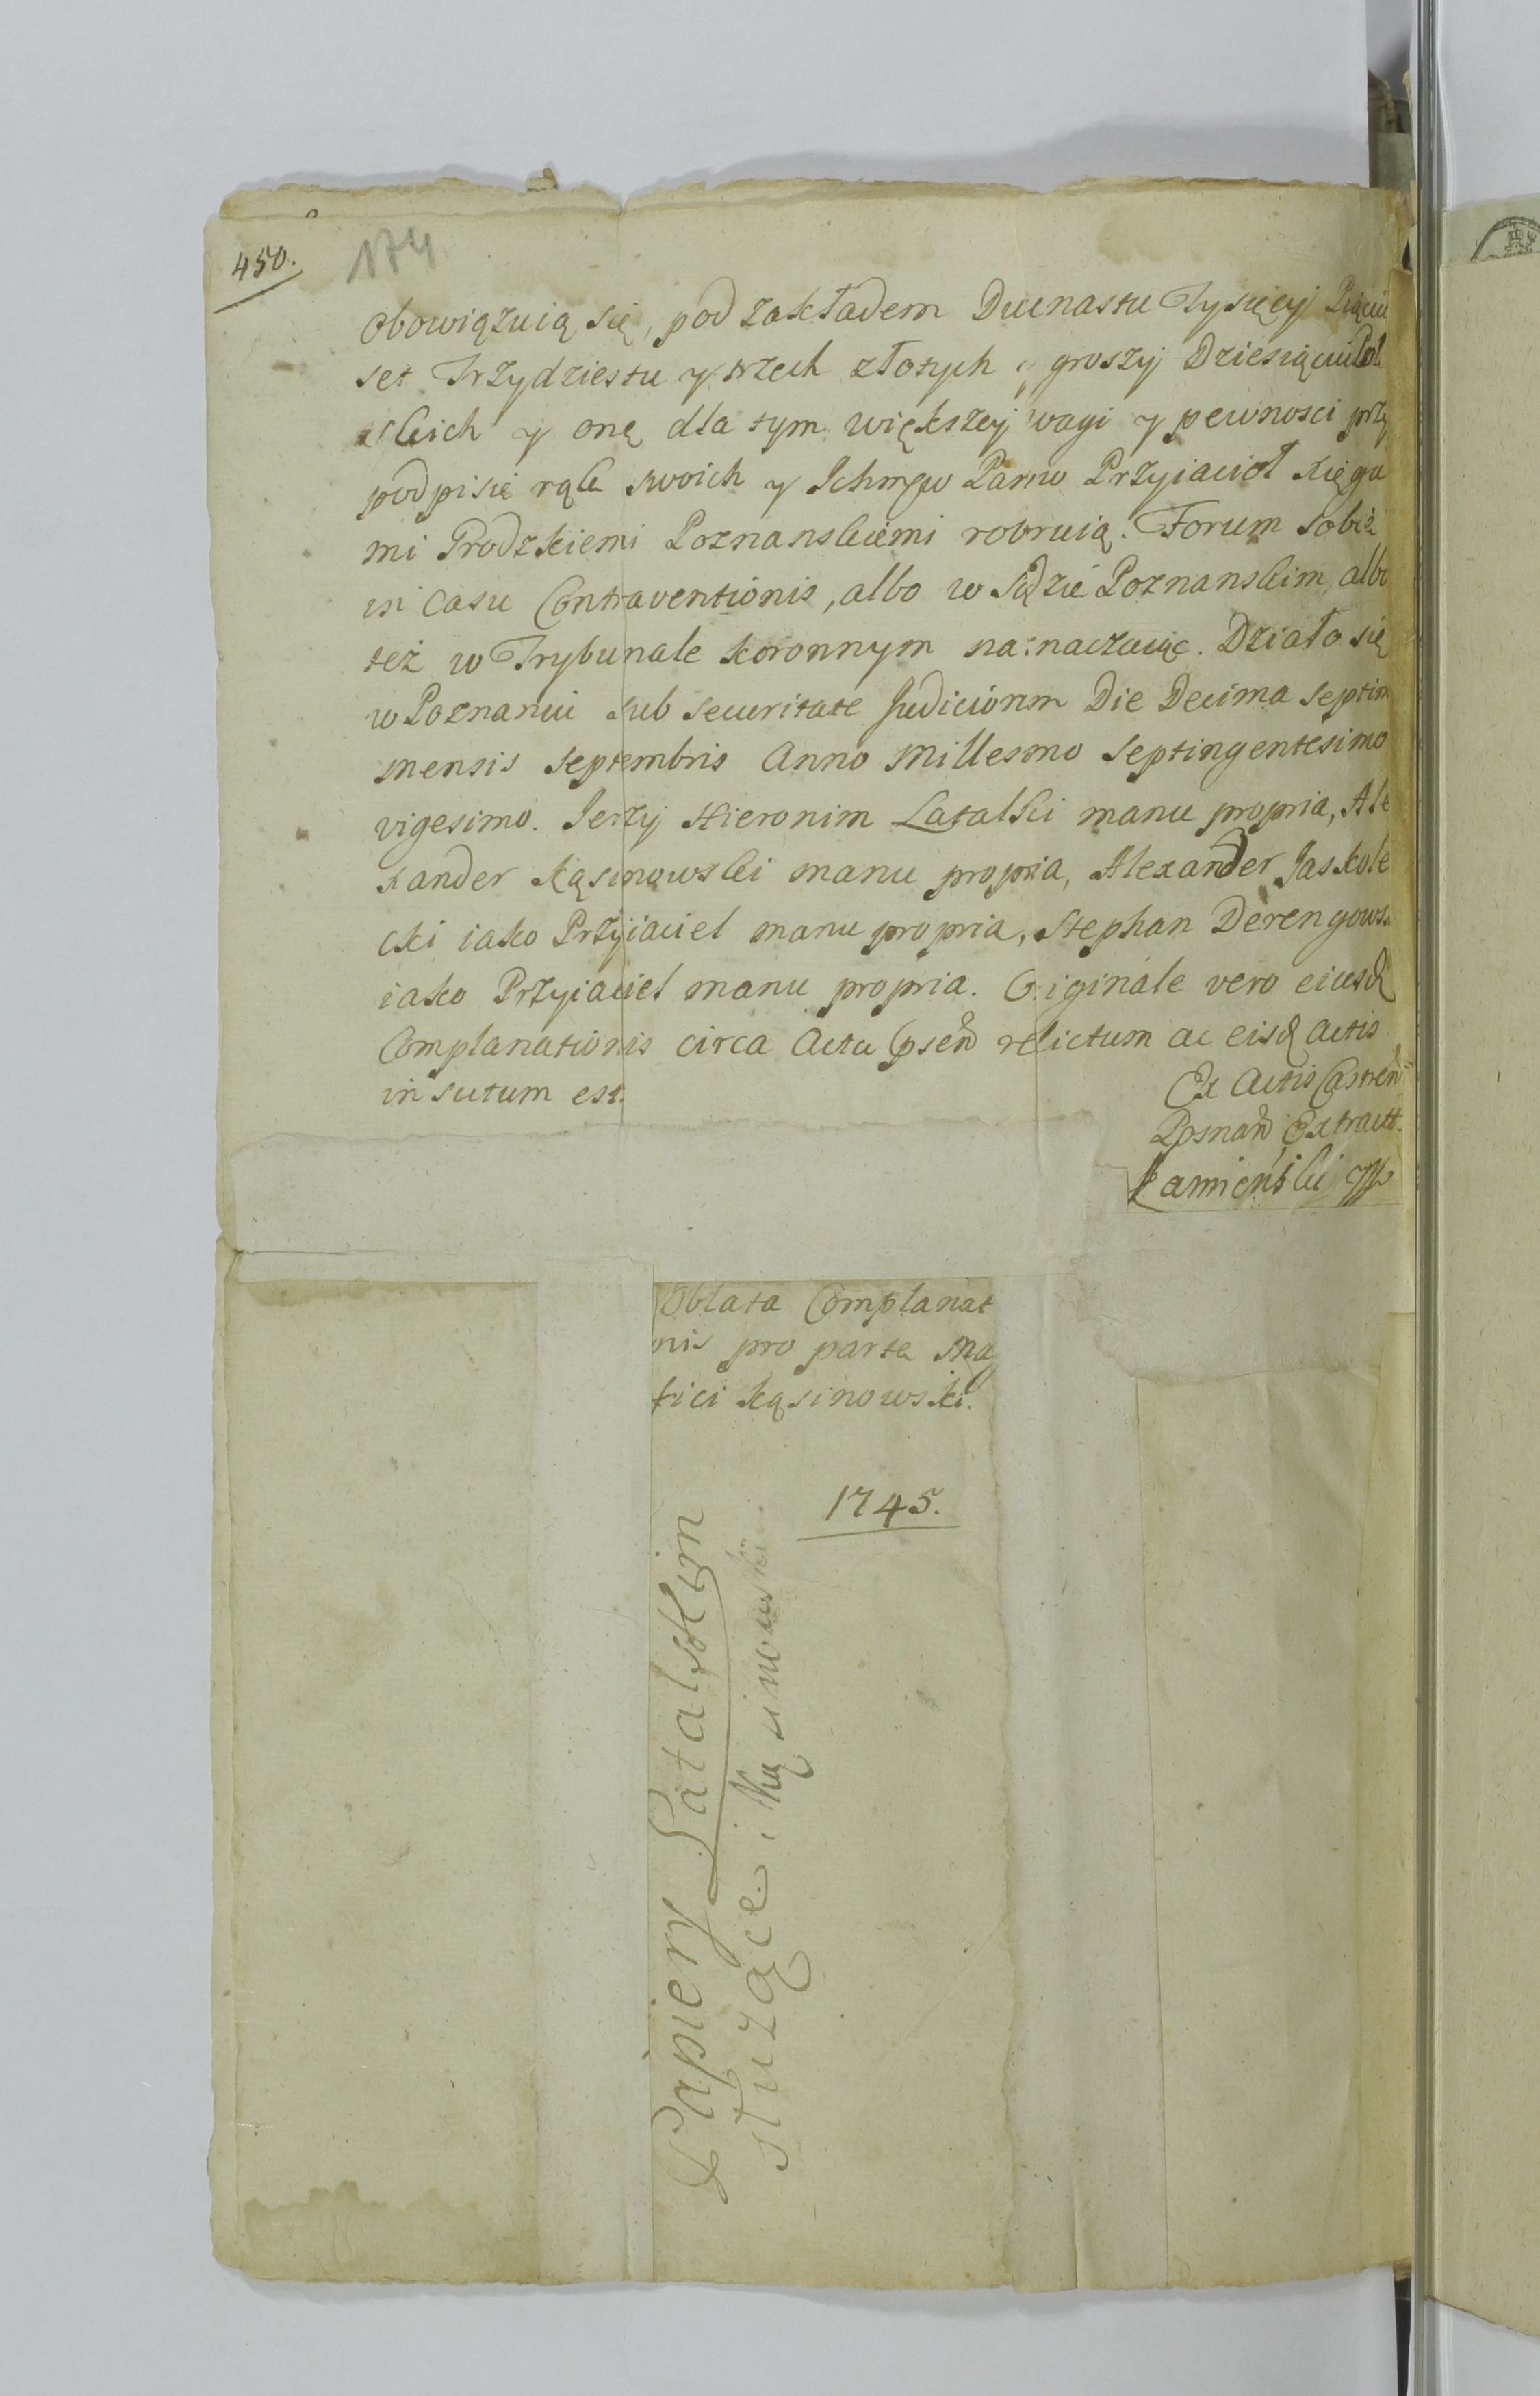 450.
174
Obowiązuią się, pod zakładem Dwunastu Tysięcy Pięciu
set Trzydziestu y trzech złotych y groszy Dziesiąciu Pol
skich y onę dla tym większey wagi y pewnosci przy
podpisie rąk swoich y Ichmćw Panw Przyiacioł xięga
mi Grodzkiemi Poznanskiemi roboruią. Forum sobie
in Casu Contraventionis, albo w Sądzie Poznanskim, albo
też w Trybunale koronnym naznaczaiąc. Działo się
w Poznaniu sub securitate Judiciorum Die Decima septim
mensis septembris Anno Millesimo Septingentesimo
vigesimo. Jerzy Hieronim Latalski manu propria, Ale
xander Kąsinowski manu propria, Alexander Jaskole
cki iako Przyiaciel manu propria, Stephan Derengows
iako Przyiaciel manu propria. Originale vero eiusd
Complanationis circa Acta psen relictum ac eisd actis
in sutum est.
Ex Actis Castren
Posnan Extractt.
Kamienski mp
Oblata Complanat
nis pro parte Mag
fici Kąsinowski.
1745.
Papiery Latalskim
służące i Kąsinowski